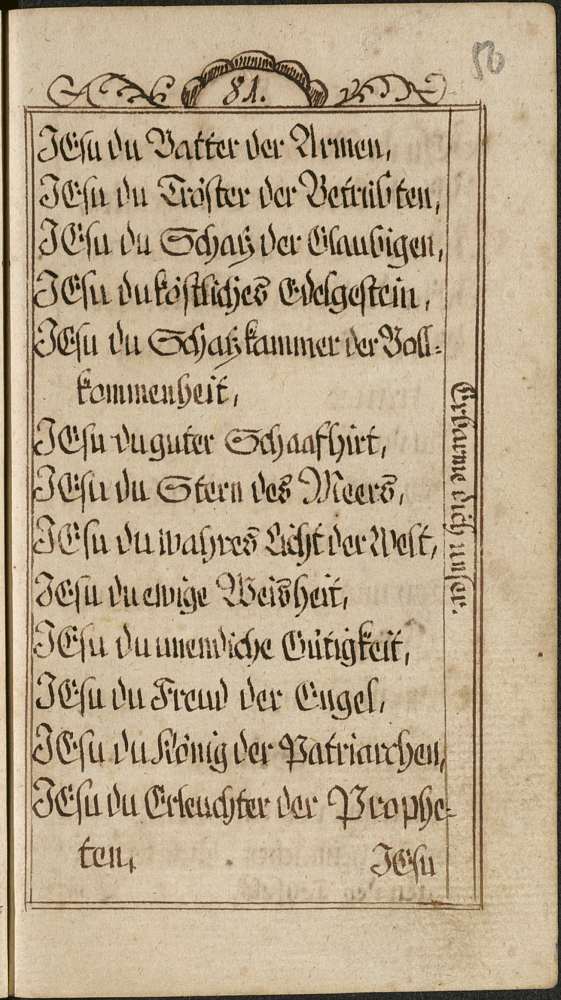 81.
JEsu du Vatter der Armen,
JEsu du Tröster der Betrübten,
JEsu du Schatz der Glaubigen,
JEsu du köstliches Edelgestein,
JEsu du Schatzkammer der Voll-
kommenheit,
JEsu du guter Schaafhirt,
JEsu du Stern des Meers,
JEsu du wahres Licht der Welt,
JEsu du ewige Weisheit,
JEsu du unendliche Gütigkeit,
JEsu du Freud der Engel,
JEsu du König der Patriarchen,
JEsu du Erleuchter der Prophe-
ten,
JEsu
Erbarme dich unser.